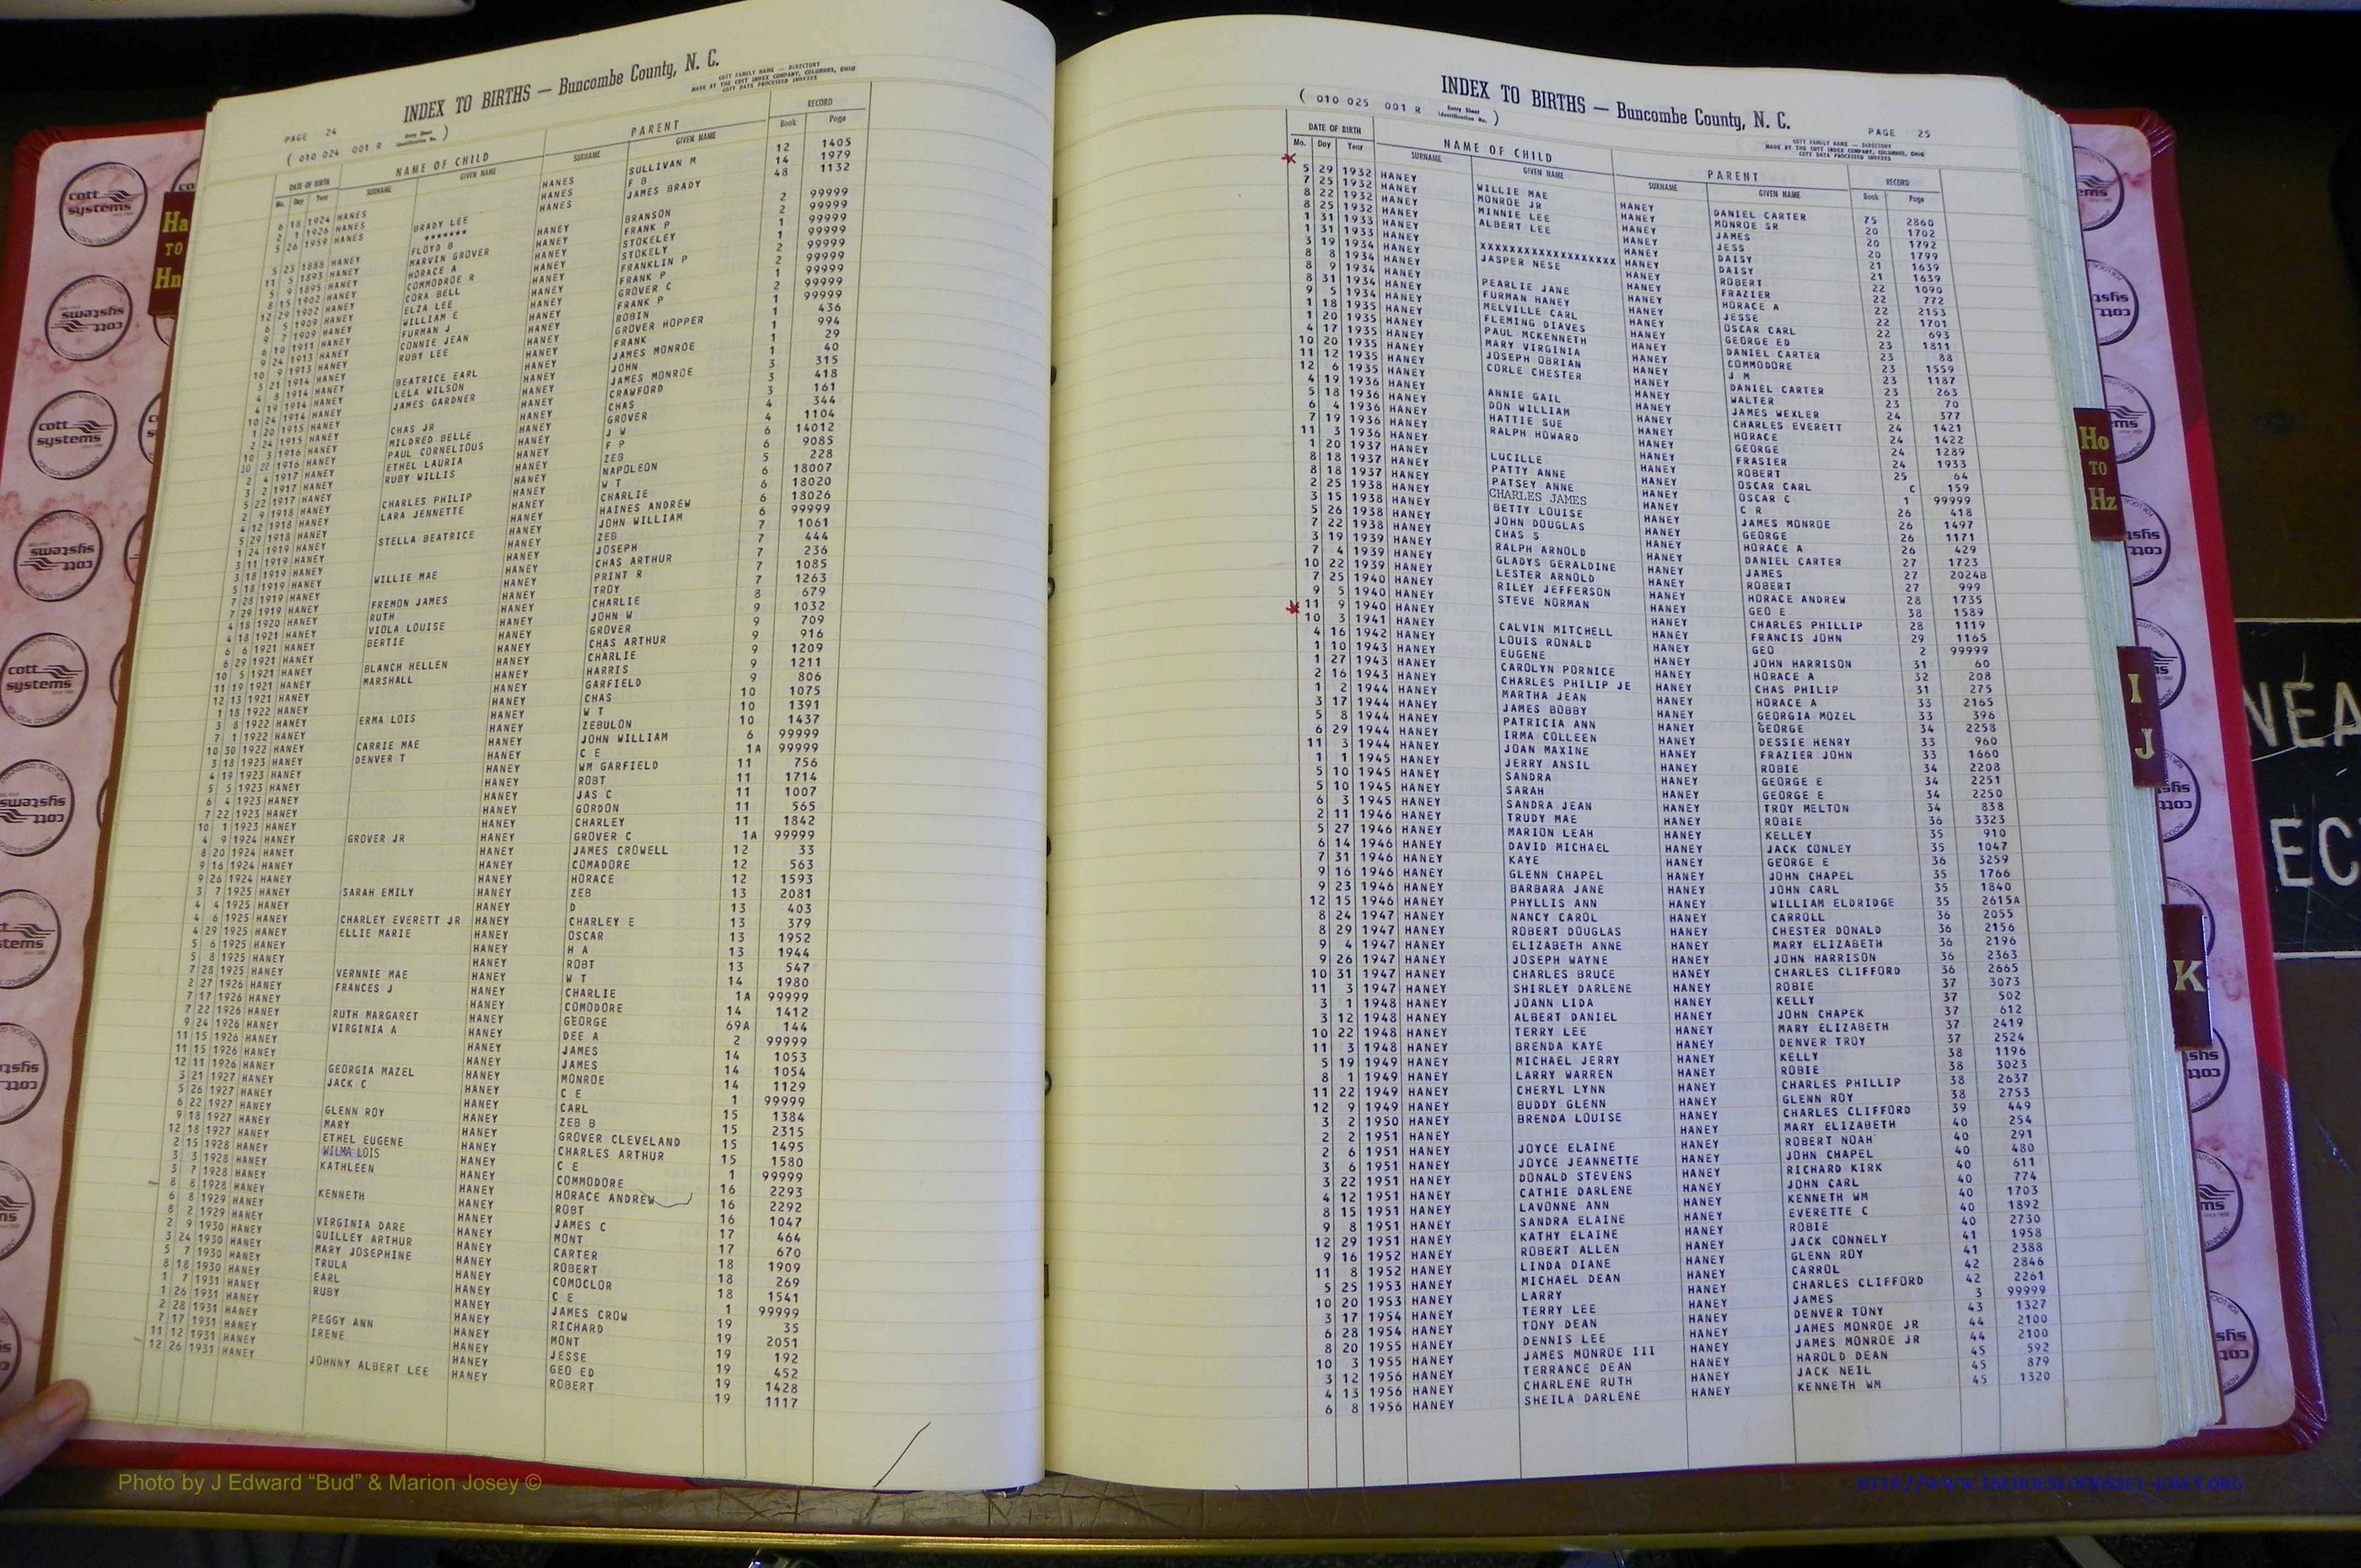 INDEX TO BIRTHS — Buncombe County, N. C.
COTT FAMILY NAME — DIRECTORY
MADE BY THE COTT INDEX COMPANY, COLUMBUS, OHIO
COTT DATA PROCESSED INDEXES
PAGE 24
( 010 024 001 R Entry Sheet Identification No. )
DATE OF BIRTH NAME OF CHILD PARENT RECORD
Mo. Day Year SURNAME GIVEN NAME SURNAME GIVEN NAME Book Page
6 18 1924 HANES HANES SULLIVAN M 12 1405
2 1 1926 HANES HANES F B 14 1979
5 26 1959 HANES BRADY LEE HANES JAMES BRADY 48 1132
*******
5 23 1888 HANEY FLOYD B HANEY BRANSON 2 99999
11 5 1893 HANEY MARVIN GROVER HANEY FRANK P 2 99999
5 9 1895 HANEY HORACE A HANEY STOKELEY 1 99999
8 15 1902 HANEY COMMODROE R HANEY STOKELY 1 99999
12 29 1902 HANEY CORA BELL HANEY FRANKLIN P 2 99999
6 5 1909 HANEY ELZA LEE HANEY FRANK P 2 99999
9 7 1909 HANEY WILLIAM E HANEY GROVER C 1 99999
6 10 1911 HANEY FURMAN J HANEY FRANK P 2 99999
9 24 1913 HANEY CONNIE JEAN HANEY ROBIN 1 99999
10 9 1913 HANEY RUBY LEE HANEY GROVER HOPPER 1 436
3 21 1914 HANEY HANEY FRANK 1 994
4 8 1914 HANEY BEATRICE EARL HANEY JAMES MONROE 1 29
4 19 1914 HANEY LELA WILSON HANEY JOHN 1 40
10 24 1914 HANEY JAMES GARDNER HANEY JAMES MONROE 3 315
1 20 1915 HANEY HANEY CRAWFORD 3 418
2 24 1915 HANEY CHAS JR HANEY CHAS 3 161
10 3 1916 HANEY MILDRED BELLE HANEY GROVER 4 344
10 22 1916 HANEY PAUL CORNELIOUS HANEY J W 4 1104
2 4 1917 HANEY ETHEL LAURIA HANEY F P 6 14012
3 2 1917 HANEY RUBY WILLIS HANEY ZEB 6 9085
5 22 1917 HANEY HANEY NAPOLEON 5 228
2 9 1918 HANEY CHARLES PHILIP HANEY W T 6 18007
4 12 1918 HANEY LARA JENNETTE HANEY CHARLIE 6 18020
5 29 1918 HANEY HANEY HAINES ANDREW 6 18026
1 24 1919 HANEY STELLA BEATRICE HANEY JOHN WILLIAM 6 99999
3 11 1919 HANEY HANEY ZEB 7 1061
3 18 1919 HANEY HANEY JOSEPH 7 444
5 18 1919 HANEY WILLIE MAE HANEY CHAS ARTHUR 7 236
7 28 1919 HANEY HANEY PRINT R 7 1085
7 29 1919 HANEY FREMON JAMES HANEY TROY 7 1263
4 18 1920 HANEY RUTH HANEY CHARLIE 8 679
4 18 1921 HANEY VIOLA LOUISE HANEY JOHN W 9 1032
6 6 1921 HANEY BERTIE HANEY GROVER 9 709
6 29 1921 HANEY HANEY CHAS ARTHUR 9 916
10 5 1921 HANEY BLANCH HELLEN HANEY CHARLIE 9 1209
11 19 1921 HANEY MARSHALL HANEY HARRIS 9 1211
12 13 1921 HANEY HANEY GARFIELD 9 806
1 18 1922 HANEY HANEY CHAS 10 1075
3 8 1922 HANEY ERMA LOIS HANEY W T 10 1391
7 1 1922 HANEY HANEY ZEBULON 10 1437
10 30 1922 HANEY CARRIE MAE HANEY JOHN WILLIAM 6 99999
3 18 1923 HANEY DENVER T HANEY C E 1A 99999
4 19 1923 HANEY HANEY WM GARFIELD 11 756
5 5 1923 HANEY HANEY ROBT 11 1714
6 4 1923 HANEY HANEY JAS C 11 1007
7 22 1923 HANEY HANEY GORDON 11 565
10 1 1923 HANEY HANEY CHARLEY 11 1842
4 9 1924 HANEY GROVER JR HANEY GROVER C 1A 99999
8 20 1924 HANEY HANEY JAMES CROWELL 12 33
9 16 1924 HANEY HANEY COMADORE 12 563
9 26 1924 HANEY HANEY HORACE 12 1593
3 7 1925 HANEY SARAH EMILY HANEY ZEB 13 2081
4 4 1925 HANEY HANEY D 13 403
4 6 1925 HANEY CHARLEY EVERETT JR HANEY CHARLEY E 13 379
4 29 1925 HANEY ELLIE MARIE HANEY OSCAR 13 1952
5 6 1925 HANEY HANEY H A 13 1944
5 8 1925 HANEY HANEY ROBT 13 547
7 28 1925 HANEY VERNNIE MAE HANEY W T 14 1980
2 27 1926 HANEY FRANCES J HANEY CHARLIE 1A 99999
7 17 1926 HANEY HANEY COMODORE 14 1412
7 22 1926 HANEY RUTH MARGARET HANEY GEORGE 69A 144
9 24 1926 HANEY VIRGINIA A HANEY DEE A 2 99999
11 15 1926 HANEY HANEY JAMES 14 1053
11 15 1926 HANEY HANEY JAMES 14 1054
12 11 1926 HANEY GEORGIA MAZEL HANEY MONROE 14 1129
3 21 1927 HANEY JACK C HANEY C E 1 99999
5 26 1927 HANEY HANEY CARL 15 1384
6 22 1927 HANEY GLENN ROY HANEY ZEB B 15 2315
9 18 1927 HANEY MARY HANEY GROVER CLEVELAND 15 1495
12 18 1927 HANEY ETHEL EUGENE HANEY CHARLES ARTHUR 15 1580
2 15 1928 HANEY WILMA LOIS HANEY C E 1 99999
3 3 1928 HANEY KATHLEEN HANEY COMMODORE 16 2293
3 7 1928 HANEY HANEY HORACE ANDREW 16 2292
8 8 1928 HANEY KENNETH HANEY ROBT 16 1047
6 8 1929 HANEY HANEY JAMES C 17 464
8 2 1929 HANEY VIRGINIA DARE HANEY MONT 17 670
2 9 1930 HANEY QUILLEY ARTHUR HANEY CARTER 18 1909
3 24 1930 HANEY MARY JOSEPHINE HANEY ROBERT 18 269
5 7 1930 HANEY TRULA HANEY COMOCLOR 18 1541
8 18 1930 HANEY EARL HANEY C E 1 99999
1 7 1931 HANEY RUBY HANEY JAMES CROW 19 35
1 26 1931 HANEY HANEY RICHARD 19 2051
2 28 1931 HANEY PEGGY ANN HANEY MONT 19 192
7 17 1931 HANEY IRENE HANEY JESSE 19 452
11 12 1931 HANEY HANEY GEO ED 19 1428
12 26 1931 HANEY JOHNNY ALBERT LEE HANEY ROBERT 19 1117
INDEX TO BIRTHS — Buncombe County, N. C.
( 010 025 001 R Entry Sheet Identification No. )
PAGE 25
COTT FAMILY NAME — DIRECTORY
MADE BY THE COTT INDEX COMPANY, COLUMBUS, OHIO
COTT DATA PROCESSED INDEXES
DATE OF BIRTH NAME OF CHILD PARENT RECORD
Mo. Day Year SURNAME GIVEN NAME SURNAME GIVEN NAME Book Page
5 29 1932 HANEY WILLIE MAE HANEY DANIEL CARTER 75 2860
7 25 1932 HANEY MONROE JR HANEY MONROE SR 20 1702
8 22 1932 HANEY MINNIE LEE HANEY JAMES 20 1792
8 25 1932 HANEY ALBERT LEE HANEY JESS 20 1799
1 31 1933 HANEY HANEY DAISY 21 1639
1 31 1933 HANEY XXXXXXXXXXXXXXXXXX HANEY DAISY 21 1639
3 19 1934 HANEY JASPER NESE HANEY ROBERT 22 1090
8 8 1934 HANEY HANEY FRAZIER 22 772
8 9 1934 HANEY PEARLIE JANE HANEY HORACE A 22 2153
8 31 1934 HANEY FURMAN HANEY HANEY JESSE 22 1701
9 5 1934 HANEY MELVILLE CARL HANEY OSCAR CARL 22 693
1 18 1935 HANEY FLEMING DIAVES HANEY GEORGE ED 23 1811
1 20 1935 HANEY PAUL MCKENNETH HANEY DANIEL CARTER 23 88
4 17 1935 HANEY MARY VIRGINIA HANEY COMMODORE 23 1559
10 20 1935 HANEY JOSEPH OBRIAN HANEY J M 23 1187
11 12 1935 HANEY CORLE CHESTER HANEY DANIEL CARTER 23 263
12 6 1935 HANEY HANEY WALTER 23 70
4 19 1936 HANEY ANNIE GAIL HANEY JAMES WEXLER 24 377
5 18 1936 HANEY DON WILLIAM HANEY CHARLES EVERETT 24 1421
6 4 1936 HANEY HATTIE SUE HANEY HORACE 24 1422
7 19 1936 HANEY RALPH HOWARD HANEY GEORGE 24 1289
11 3 1936 HANEY HANEY FRASIER 24 1933
1 20 1937 HANEY LUCILLE HANEY ROBERT 25 64
8 18 1937 HANEY PATTY ANNE HANEY OSCAR CARL C 159
8 18 1937 HANEY PATSEY ANNE HANEY OSCAR C 1 99999
2 25 1938 HANEY CHARLES JAMES HANEY C R 26 418
3 15 1938 HANEY BETTY LOUISE HANEY JAMES MONROE 26 1497
5 26 1938 HANEY JOHN DOUGLAS HANEY GEORGE 26 1171
7 22 1938 HANEY CHAS S HANEY HORACE A 26 429
3 19 1939 HANEY RALPH ARNOLD HANEY DANIEL CARTER 27 1723
7 4 1939 HANEY GLADYS GERALDINE HANEY JAMES 27 2024B
10 22 1939 HANEY LESTER ARNOLD HANEY ROBERT 27 999
7 25 1940 HANEY RILEY JEFFERSON HANEY HORACE ANDREW 28 1735
9 5 1940 HANEY STEVE NORMAN HANEY GEO E 38 1589
11 9 1940 HANEY HANEY CHARLES PHILLIP 28 1119
10 3 1941 HANEY CALVIN MITCHELL HANEY FRANCIS JOHN 29 1165
4 16 1942 HANEY LOUIS RONALD HANEY GEO 2 99999
1 10 1943 HANEY EUGENE HANEY JOHN HARRISON 31 60
1 27 1943 HANEY CAROLYN PORNICE HANEY HORACE A 32 208
2 16 1943 HANEY CHARLES PHILIP JE HANEY CHAS PHILIP 31 275
1 2 1944 HANEY MARTHA JEAN HANEY HORACE A 33 2165
3 17 1944 HANEY JAMES BOBBY HANEY GEORGIA MOZEL 33 396
5 8 1944 HANEY PATRICIA ANN HANEY GEORGE 34 2258
6 29 1944 HANEY IRMA COLLEEN HANEY DESSIE HENRY 33 960
11 3 1944 HANEY JOAN MAXINE HANEY FRAZIER JOHN 33 1660
1 1 1945 HANEY JERRY ANSIL HANEY ROBIE 34 2208
5 10 1945 HANEY SANDRA HANEY GEORGE E 34 2251
5 10 1945 HANEY SARAH HANEY GEORGE E 34 2250
6 3 1945 HANEY SANDRA JEAN HANEY TROY MELTON 34 838
2 11 1946 HANEY TRUDY MAE HANEY ROBIE 36 3323
5 27 1946 HANEY MARION LEAH HANEY KELLEY 35 910
6 14 1946 HANEY DAVID MICHAEL HANEY JACK CONLEY 35 1047
7 31 1946 HANEY KAYE HANEY GEORGE E 36 3259
9 16 1946 HANEY GLENN CHAPEL HANEY JOHN CHAPEL 35 1766
9 23 1946 HANEY BARBARA JANE HANEY JOHN CARL 35 1840
12 15 1946 HANEY PHYLLIS ANN HANEY WILLIAM ELDRIDGE 35 2615A
8 24 1947 HANEY NANCY CAROL HANEY CARROLL 36 2055
8 29 1947 HANEY ROBERT DOUGLAS HANEY CHESTER DONALD 36 2156
9 4 1947 HANEY ELIZABETH ANNE HANEY MARY ELIZABETH 36 2196
9 26 1947 HANEY JOSEPH WAYNE HANEY JOHN HARRISON 36 2363
10 31 1947 HANEY CHARLES BRUCE HANEY CHARLES CLIFFORD 36 2665
11 3 1947 HANEY SHIRLEY DARLENE HANEY ROBIE 37 3073
3 1 1948 HANEY JOANN LIDA HANEY KELLY 37 502
3 12 1948 HANEY ALBERT DANIEL HANEY JOHN CHAPEK 37 612
10 22 1948 HANEY TERRY LEE HANEY MARY ELIZABETH 37 2419
11 3 1948 HANEY BRENDA KAYE HANEY DENVER TROY 37 2524
5 19 1949 HANEY MICHAEL JERRY HANEY KELLY 38 1196
8 1 1949 HANEY LARRY WARREN HANEY ROBIE 38 3023
11 22 1949 HANEY CHERYL LYNN HANEY CHARLES PHILLIP 38 2637
12 9 1949 HANEY BUDDY GLENN HANEY GLENN ROY 38 2753
3 2 1950 HANEY BRENDA LOUISE HANEY CHARLES CLIFFORD 39 449
2 2 1951 HANEY HANEY MARY ELIZABETH 40 254
2 6 1951 HANEY JOYCE ELAINE HANEY ROBERT NOAH 40 291
3 6 1951 HANEY JOYCE JEANNETTE HANEY JOHN CHAPEL 40 480
3 22 1951 HANEY DONALD STEVENS HANEY RICHARD KIRK 40 611
4 12 1951 HANEY CATHIE DARLENE HANEY JOHN CARL 40 774
8 15 1951 HANEY LAVONNE ANN HANEY KENNETH WM 40 1703
9 8 1951 HANEY SANDRA ELAINE HANEY EVERETTE C 40 1892
12 29 1951 HANEY KATHY ELAINE HANEY ROBIE 40 2730
9 16 1952 HANEY ROBERT ALLEN HANEY JACK CONNELY 41 1958
11 8 1952 HANEY LINDA DIANE HANEY GLENN ROY 41 2388
5 25 1953 HANEY MICHAEL DEAN HANEY CARROL 42 2846
10 20 1953 HANEY LARRY HANEY CHARLES CLIFFORD 42 2261
3 17 1954 HANEY TERRY LEE HANEY JAMES 3 99999
6 28 1954 HANEY TONY DEAN HANEY DENVER TONY 43 1327
8 20 1955 HANEY DENNIS LEE HANEY JAMES MONROE JR 44 2100
10 3 1955 HANEY JAMES MONROE III HANEY JAMES MONROE JR 44 2100
3 12 1956 HANEY TERRANCE DEAN HANEY HAROLD DEAN 45 592
4 13 1956 HANEY CHARLENE RUTH HANEY JACK NEIL 45 879
6 8 1956 HANEY SHEILA DARLENE HANEY KENNETH WM 45 1320
Ha
TO
Hn
Ho
TO
Hz
I
J
K
cott
systems
NEA
EC
Photo by J Edward “Bud” & Marion Josey ©
HTTP://WWW.THEHOUSEOFJOSSEY-JOSEY.ORG